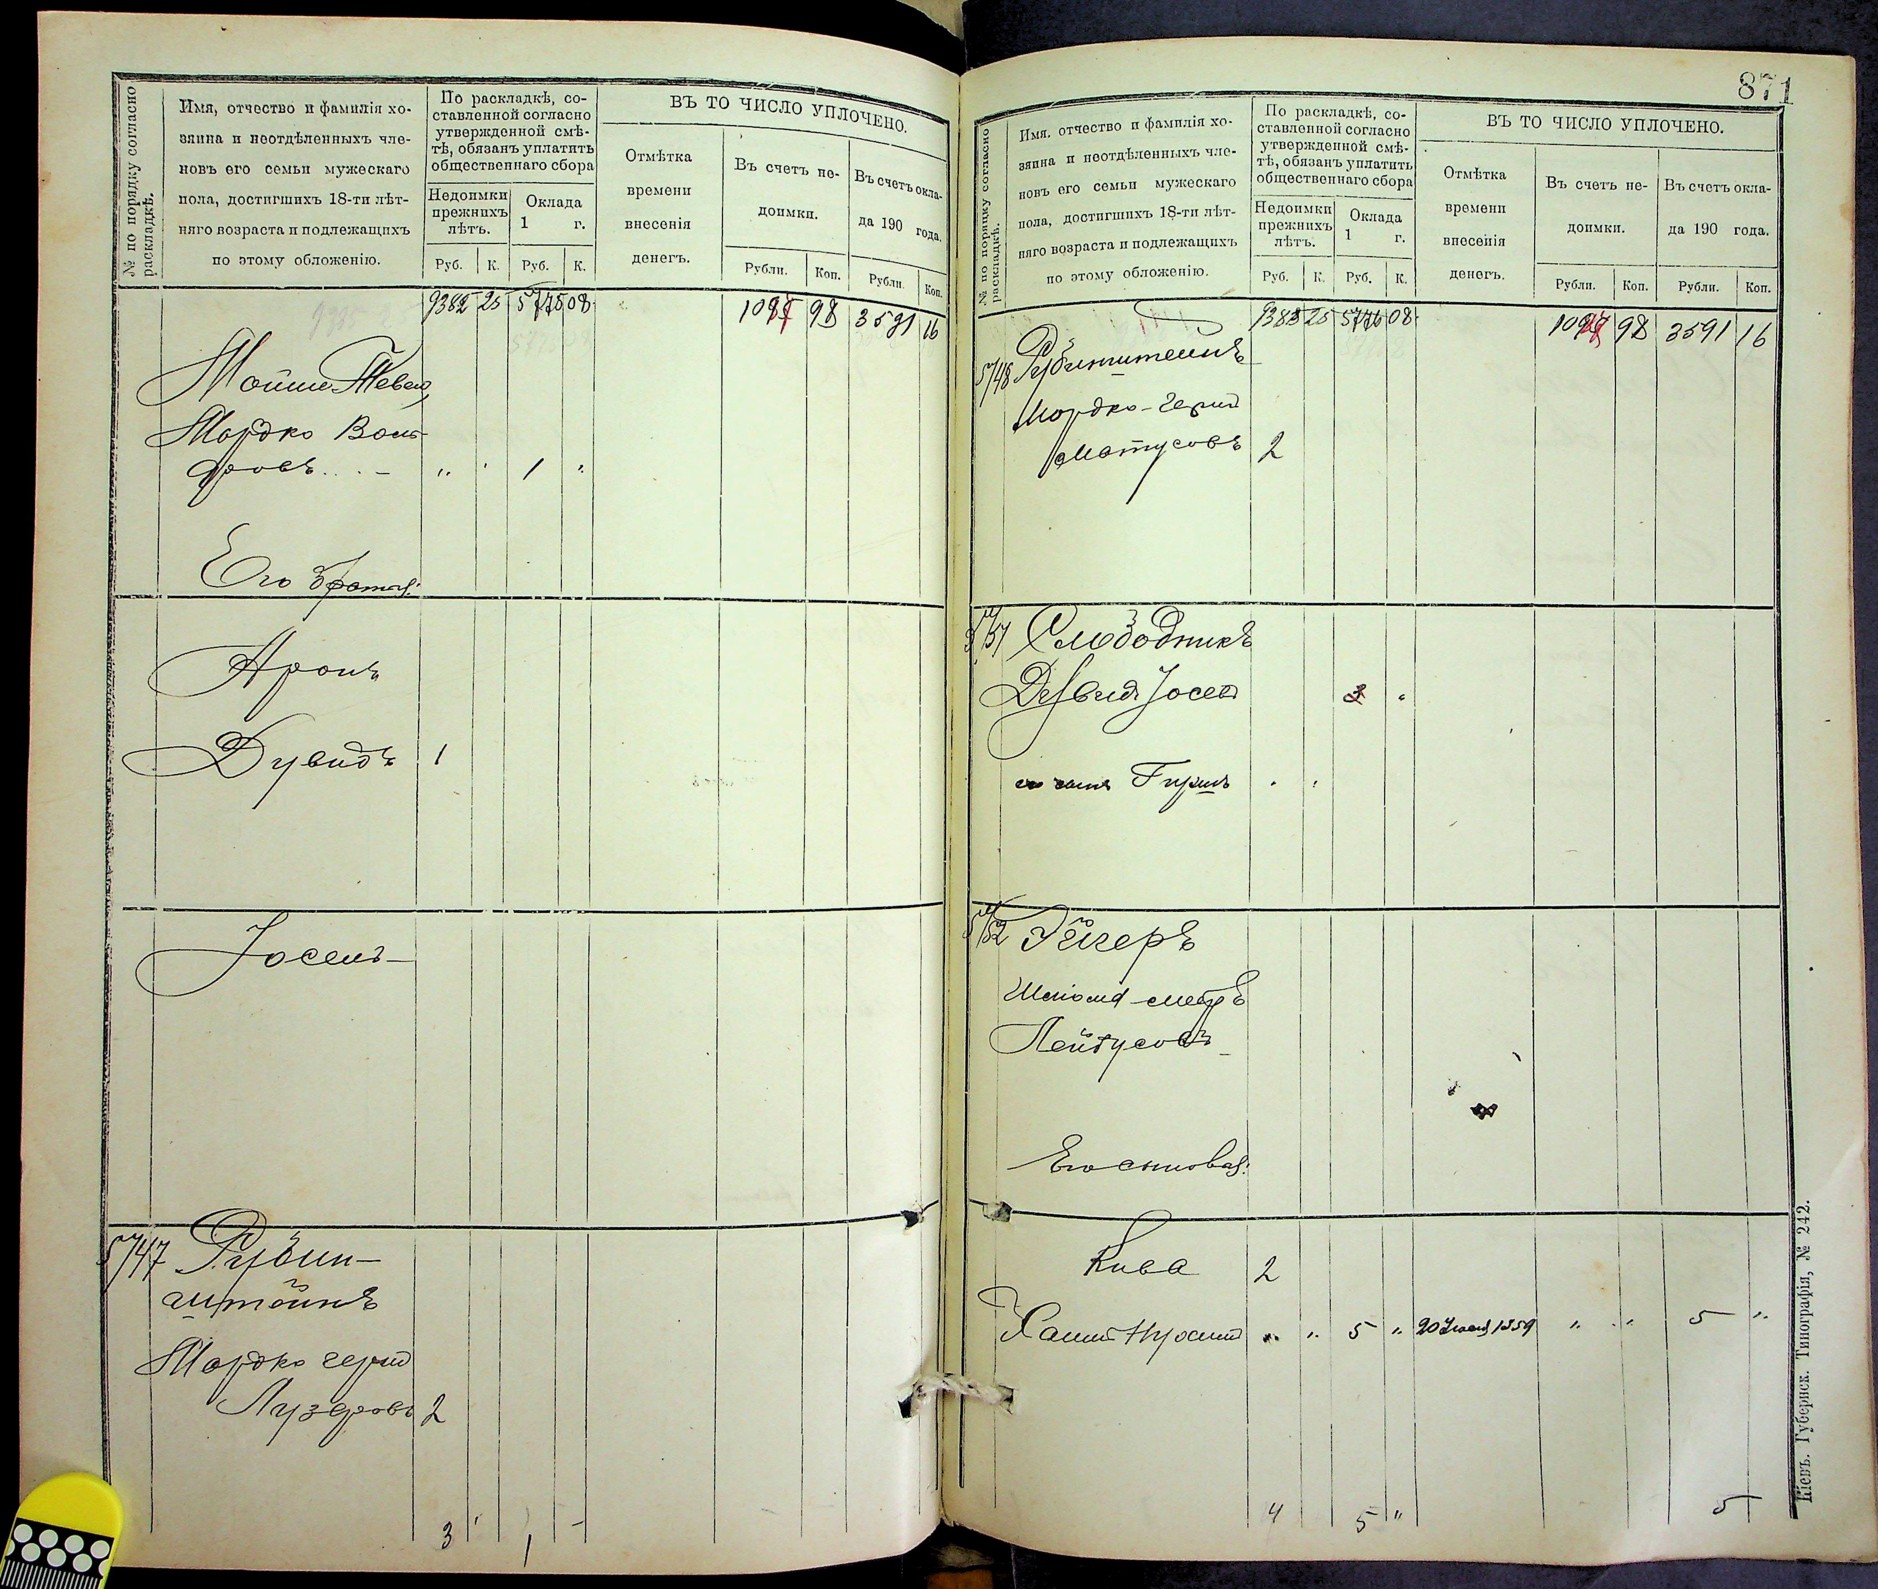 № по порядку согласно раскладкѣ.
Имя, отчество и фамилія хо-
зяина и неотдѣленныхъ чле-
новъ его семьи мужескаго
пола, достигшихъ 18-ти лѣт-
няго возраста и подлежащихъ
по этому обложенію.
По раскладкѣ, со-
ставленной согласно
утвержденной смѣ-
тѣ, обязанъ уплатить
общественнаго сбора
Недоимки
прежнихъ
лѣтъ.
Оклада
1 г.
Руб. К. Руб. К.
ВЪ ТО ЧИСЛО УПЛОЧЕНО.
Отмѣтка
времени
внесенія
денегъ.
Въ счетъ не-
доимки.
Въ счетъ окла-
да 190 года.
Рубли. Коп. Рубли. Коп.
9382 25 5775 08 98 3591 16
Мойше Тевель
Мордко Воль-
фовъ - " " 1 "
Его братья:
Аронъ
Дувидъ 1
Іосепъ
5747 Рубин-
штейнъ
Мордко герш
Лузеровъ 2
3 1 -
871
№ по порядку согласно раскладкѣ.
Имя, отчество и фамилія хо-
зяина и неотдѣленныхъ чле-
новъ его семьи мужескаго
пола, достигшихъ 18-ти лѣт-
няго возраста и подлежащихъ
по этому обложенію.
По раскладкѣ, со-
ставленной согласно
утвержденной смѣ-
тѣ, обязанъ уплатить
общественнаго сбора
Недоимки
прежнихъ
лѣтъ.
Оклада
1 г.
Руб. К. Руб. К.
ВЪ ТО ЧИСЛО УПЛОЧЕНО.
Отмѣтка
времени
внесенія
денегъ.
Въ счетъ не-
доимки.
Въ счетъ окла-
да 190 года.
Рубли. Коп. Рубли. Коп.
25 5776 08 98 3591 16
5748 Рубинштейнъ
Мордко-герш
Матусовъ 2
Слободникъ
Дувид Іосев
его сынъ Гершъ
Эйгеръ
Лейбусовъ
Его сыновья:
Кива 2
Хаим Нухим " " 5 " " " 5 "
4 5 " 5
Кіевъ. Губернск. Типографія, № 242.